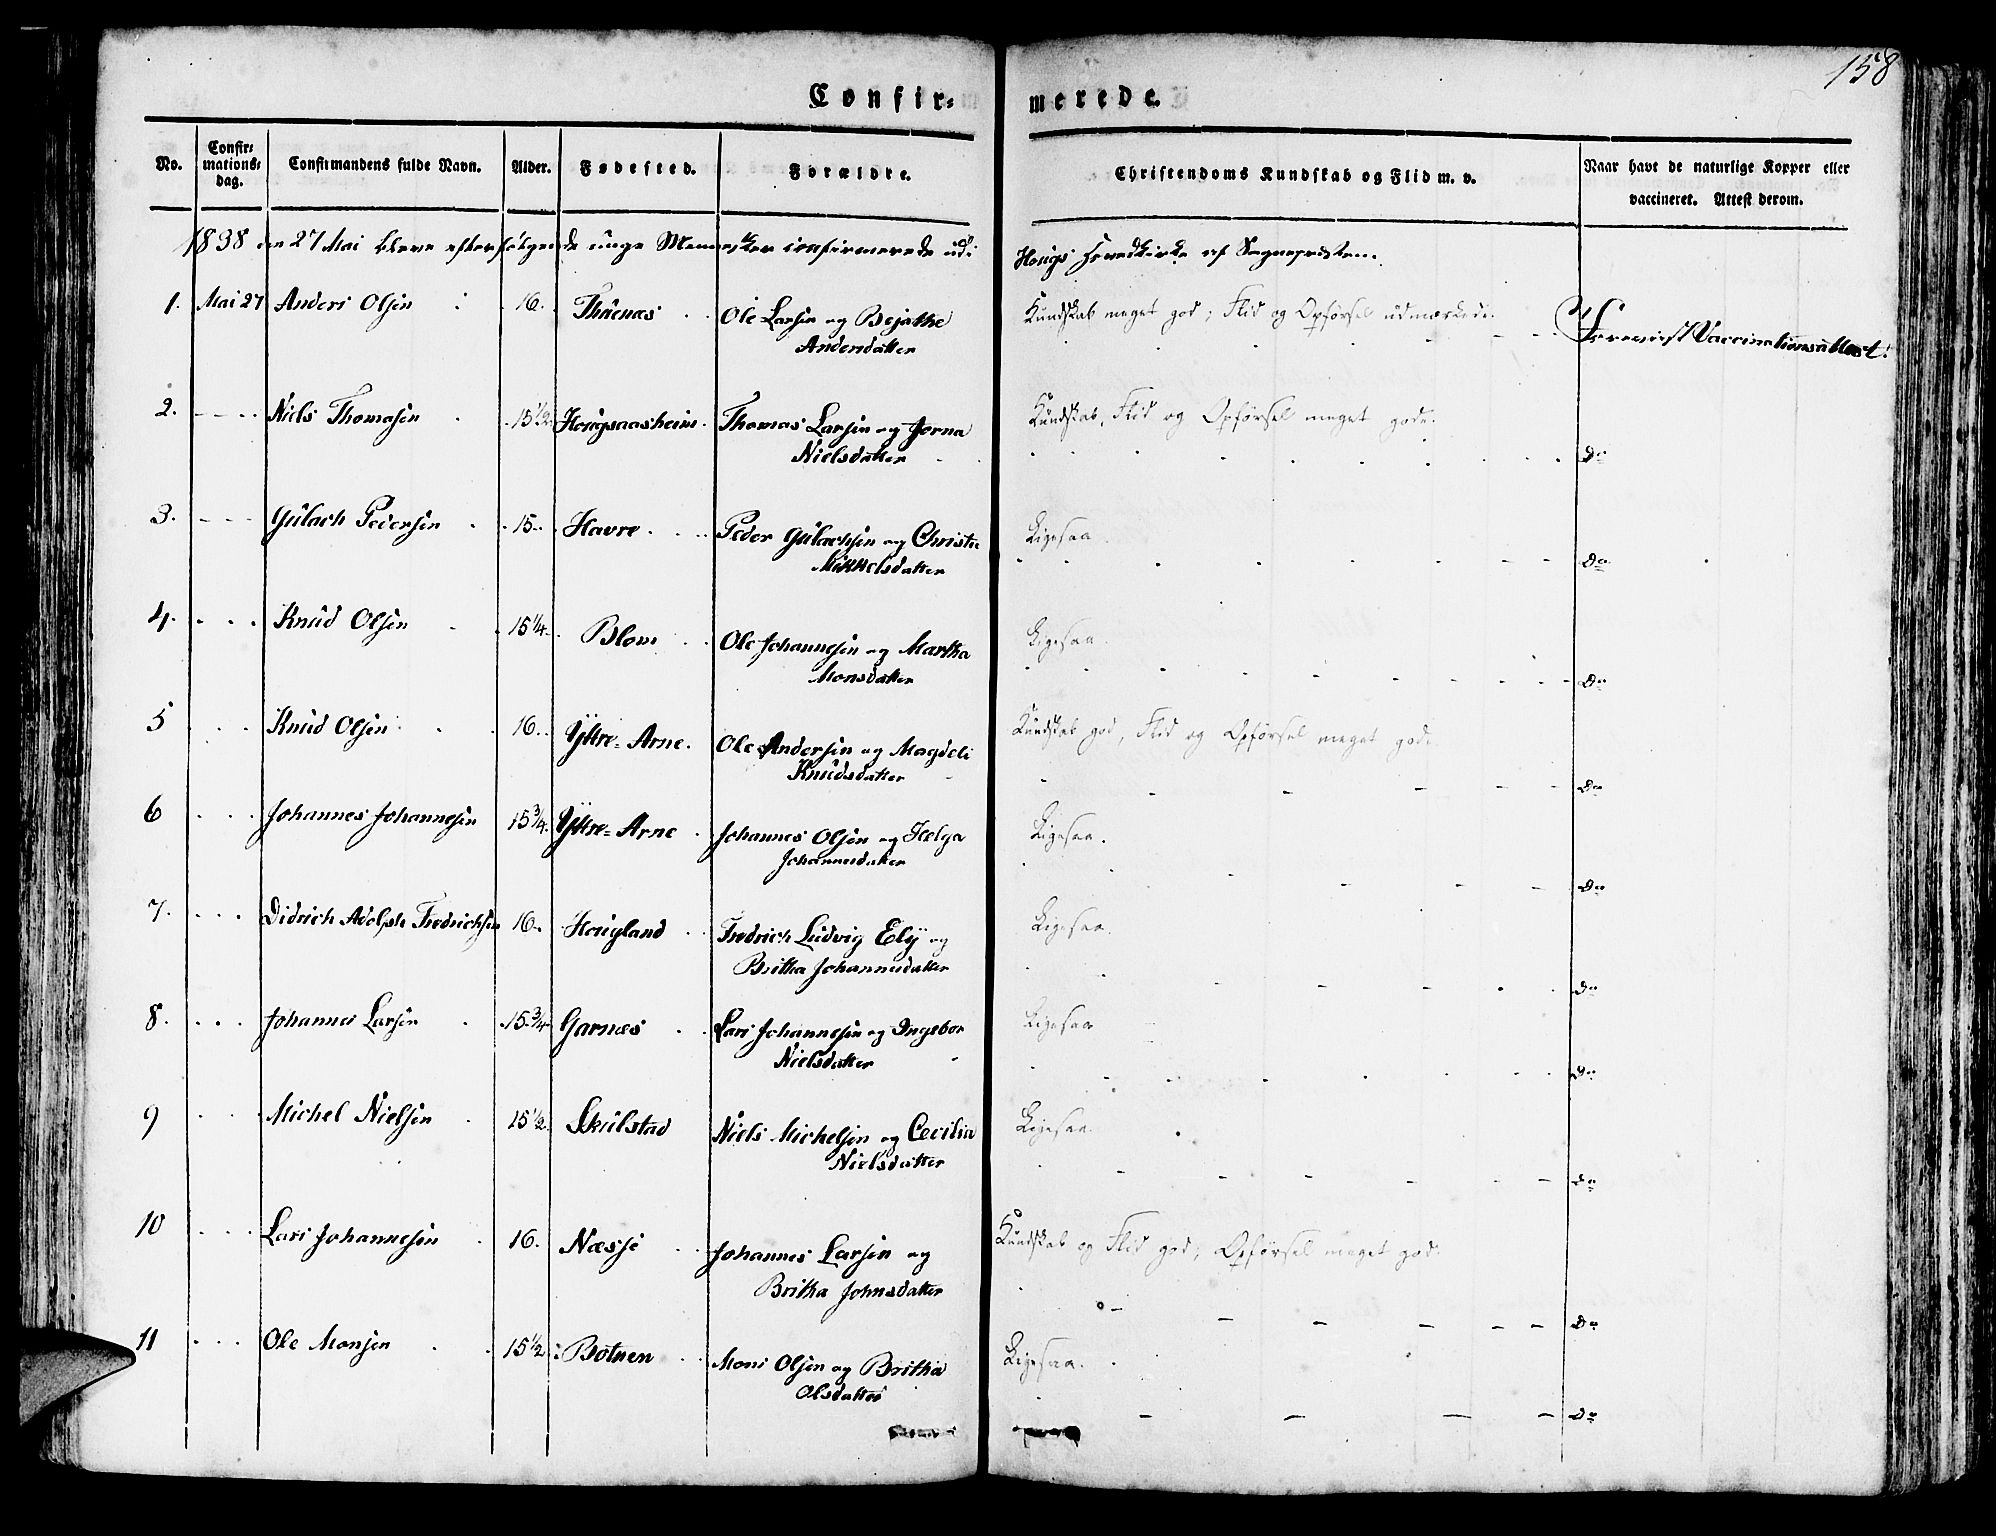 158
Confir= merede.
No. Confir=mations=dag. Confirmandens fulde Navn. Alder. Fødested. Forældre. Christendoms Kundskab og Flid m. v. Naar havt de naturlige Kopper eller vaccineret. Attest derom.
1838 den 27 Mai bleve efterfølgende unge Mennesker confirmerede udi Hougs Hovedkirke af Sognepresten.
1. Mai 27 Anders Olsen 16. Thuenæs Ole Larsen og Bejathe Kundskab meget god; Flid og Opførsel udmærkede.
Andersdatter Foreviist Vaccinationsattest.
2. Niels Thomasen 15 1/2 Hougsaasheim Thomas Larsen og Jorna Kundskab, Flid og Opførsel meget gode.
Nielsdatter Do
3. Gulach Pedersen 15 Havre Peder Gulachsen og Christie Ligesaa
Mikkelsdatter Do
4. Knud Olsen 15 1/4 Blom Ole Johannesen og Martha Ligesaa
Monsdatter Do
5 Knud Olsen 16. Yttre=Arne Ole Andersen og Magdeli Kundskab god, Flid og Opførsel meget gode
Knudsdatter Do
6 Johannes Johannesen 15 3/4. Yttre=Arne Johannes Olsen og Helga Ligesaa.
Johannesdatter Do
7. Didrich Adolph Fredrichsen 16. Hougland Fredrich Ludvig Ely og Ligesaa.
Britha Johannesdatter Do
8. Johannes Larsen 15 3/4 Garnæs Lars Johannesen og Ingebor Ligesaa
Nielsdatter Do
9 Michel Nielsen 15 1/2 Skulstad Niels Michelsen og Cecilia Ligesaa
Nielsdatter Do
10 Lars Johannesen 16. Næsse Johannes Larsen og Kundskab og Flid god; Opførsel meget god
Britha Johnsdatter Do
11 Ole Monsen 15 1/2 Botnen Mons Olsen og Britha Ligesaa.
Olsdatter Do